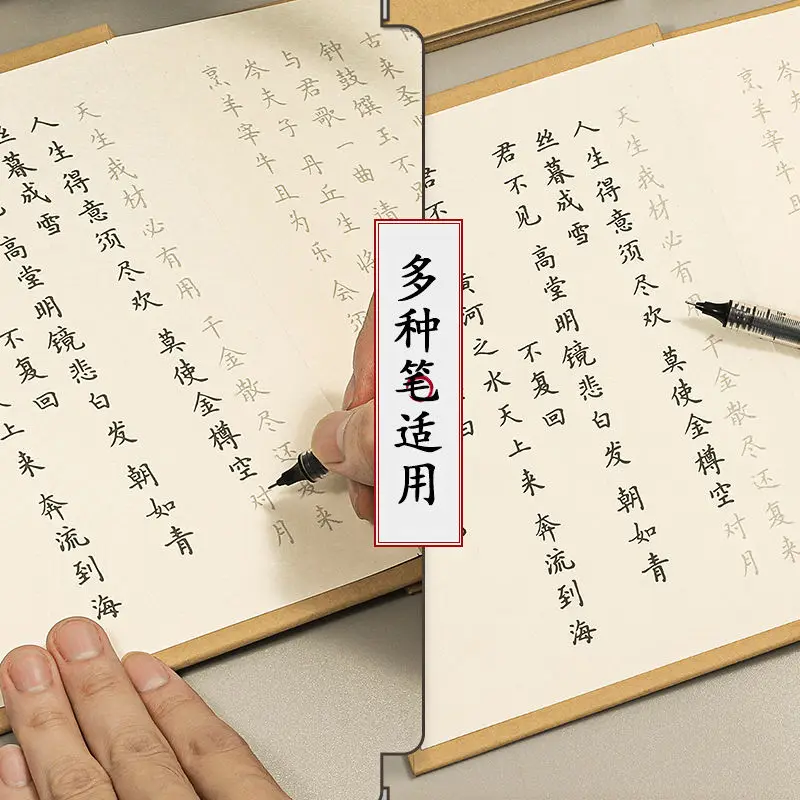 上来 奔流到海
不复回
高堂明镜悲白发 朝如青
丝暮成雪
人生得意须尽欢 莫使金樽空对月
天生我材必有用 千金散尽还复来
烹羊宰牛且为乐 会须
岑夫子 丹丘生 将
与君歌一曲 请
钟鼓馔玉不
古来圣
多种笔适用
君不
河之水天上来 奔流到海
不复回
君不见 高堂明镜悲白发 朝如青
丝暮成雪
人生得意须尽欢 莫使金樽空对月
天生我材必有用 千金散尽还复来
烹羊宰牛且
岑夫